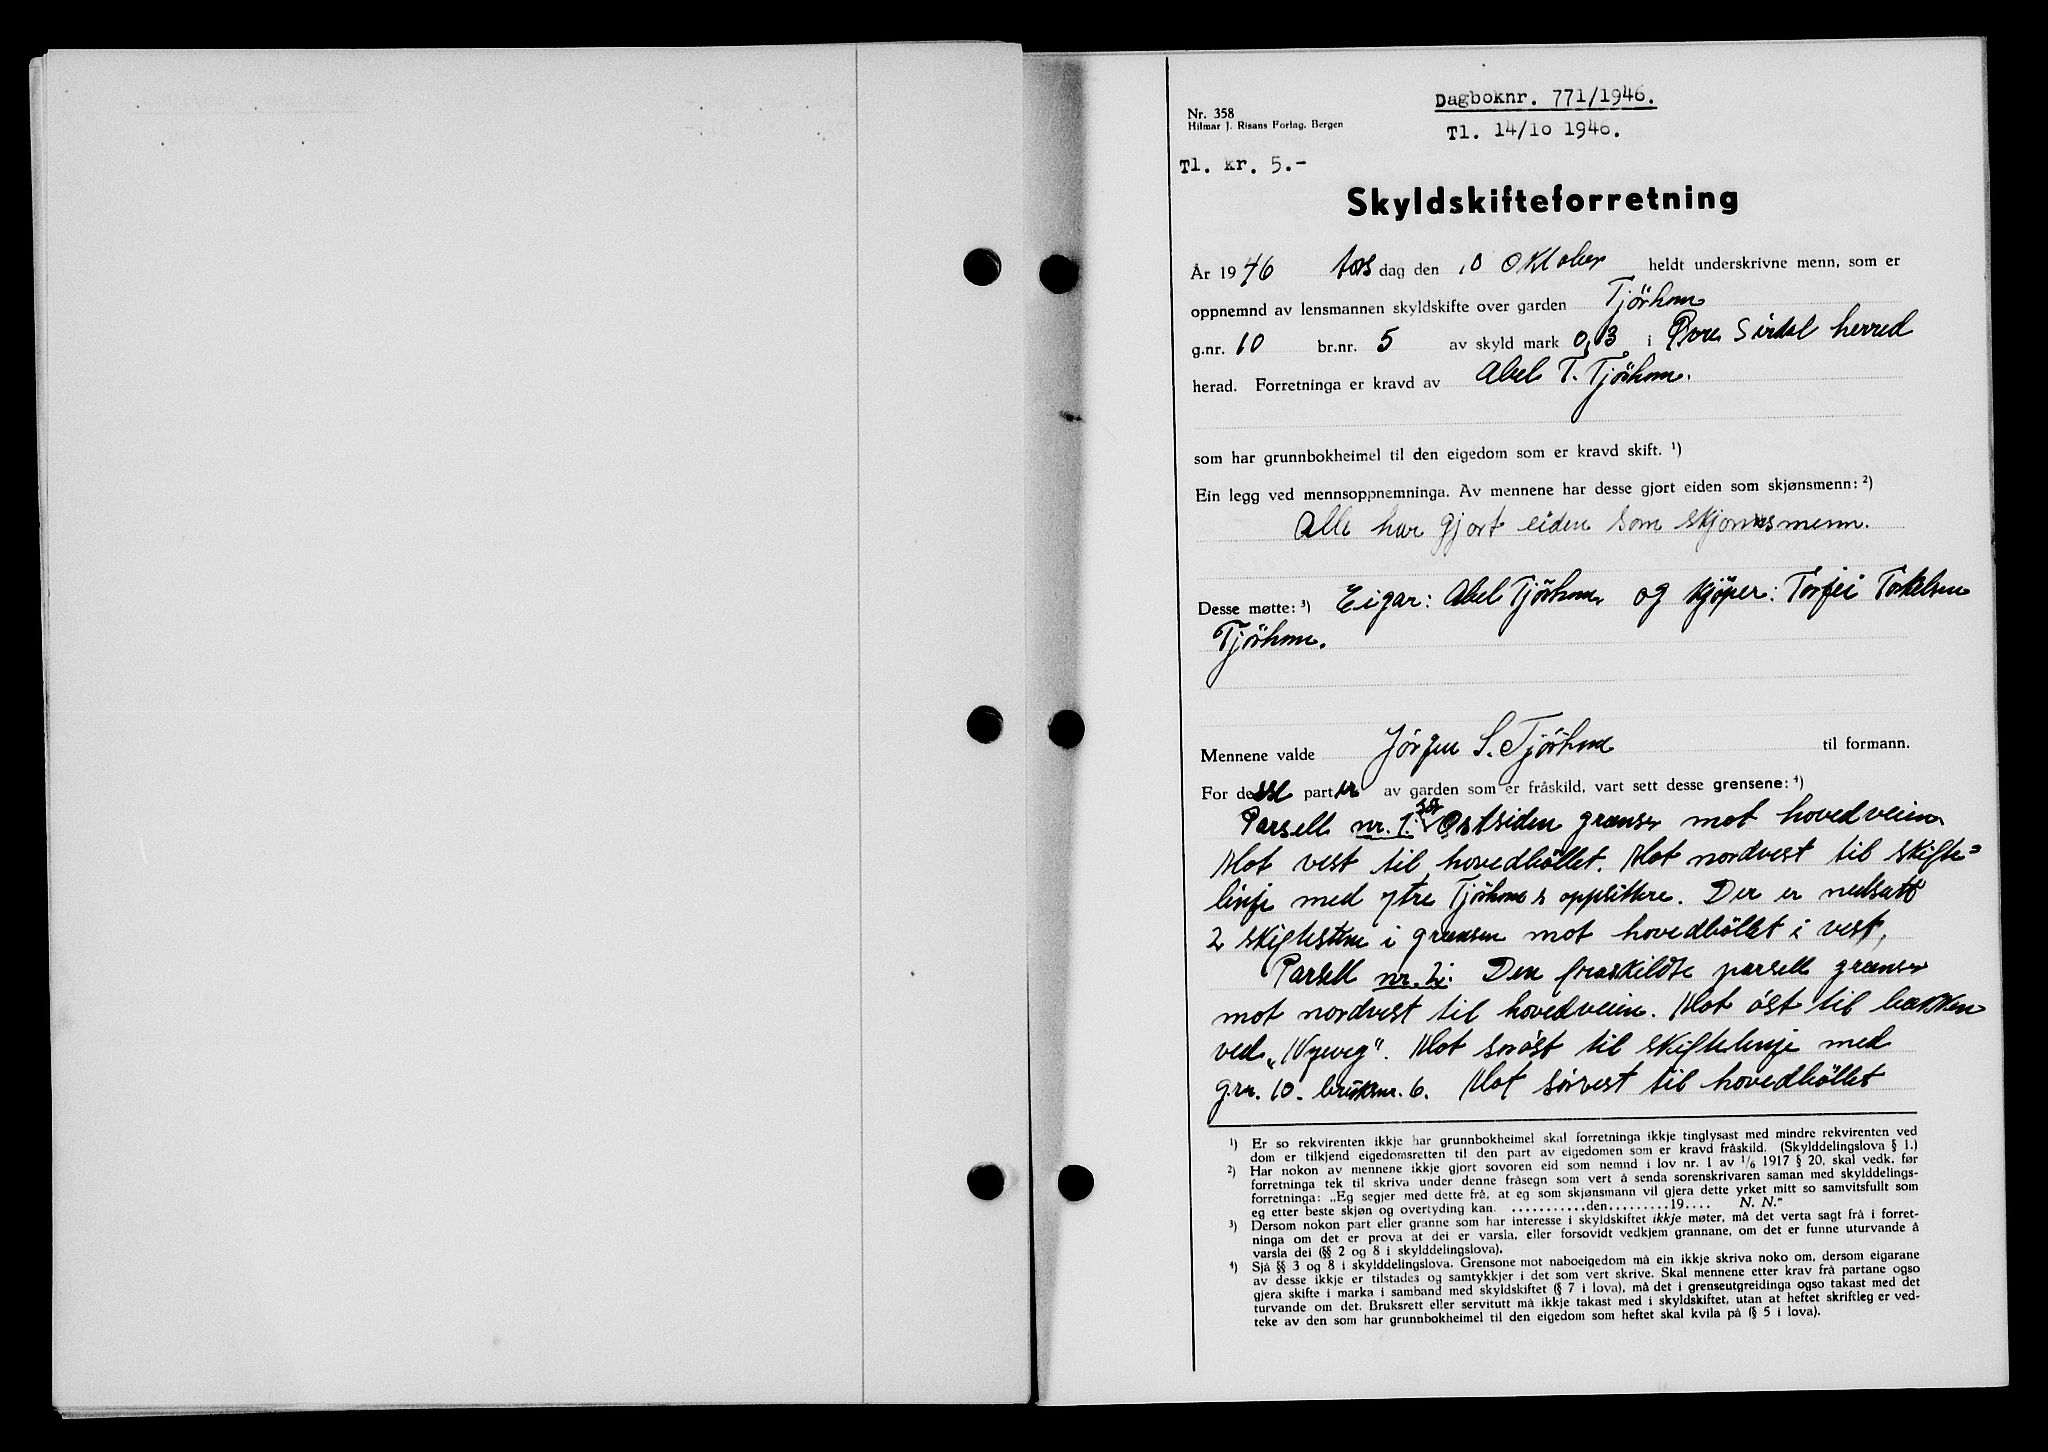 Nr. 358
Hilmar J. Risans Forlag, Bergen
Dagboknr. 771/1946.
Tl. 14/10 1946.
Tl. kr. 5.-
Skyldskifteforretning
År 1946 tors dag den 10 Oktober heldt underskrivne menn, som er
oppnemnd av lensmannen skyldskifte over garden Tjörhom
g.nr. 10 br.nr. 5 av skyld mark 0,3 i Øvre Sirdal herred
herad. Forretninga er kravd av Abel T. Tjörhom.
som har grunnbokheimel til den eigedom som er kravd skift. ¹)
Ein legg ved mennsoppnemninga. Av mennene har desse gjort eiden som skjønsmenn: ²)
Alle har gjort eiden som skjønnsmenn.
Desse møtte: ³) Eigar: Abel Tjörhom og kjöper: Torfei Torkelsen
Tjörhom.
Mennene valde Jörgen S. Tjörhom til formann.
For desse partar av garden som er fråskild, vart sett desse grensene: ⁴)
Parsell nr. 1. sør Østsiden grenser mot hovedveien
Mot vest til hovedbøllet. Mot nordvest til skifte=
linje med ytre Tjörhoms oppsittere. Der er nedsatt
2 skiftestene i grensen mot hovedbøllet i vest,
Parsell nr. 2: Den fraskildte parsell grenser
mot nordvest til hovedveien. Mot öst til bekken
ved „Nyeveg". Mot soröst til skiftelinje med
g.nr. 10. bruksnr. 6. Mot sörvest til hovedbøllet
¹) Er so rekvirenten ikkje har grunnbokheimel skal forretninga ikkje tinglysast med mindre rekvirenten ved
dom er tilkjend eigedomsretten til den part av eigedomen som er kravd fråskild. (Skylddelingslova § 1.)
²) Har nokon av mennene ikkje gjort sovoren eid som nemnd i lov nr. 1 av 1/6 1917 § 20, skal vedk. før
forretninga tek til skriva under denne fråsegn som vert å senda sorenskrivaren saman med skylddelings-
forretninga: „Eg segjer med dette frå, at eg som skjønsmann vil gjera dette yrket mitt so samvitsfullt som
eg etter beste skjøn og overtyding kan. ...........den..........19.... N. N."
³) Dersom nokon part eller granne som har interesse i skyldskiftet ikkje møter, må det verta sagt frå i forret-
ninga om det er prova at dei er varsla, eller forsovidt vedkjem grannane, om det er funne uturvande å
varsla dei (§§ 2 og 8 i skylddelingslova).
⁴) Sjå §§ 3 og 8 i skylddelingslova. Grensone mot naboeigedom må ein ikkje skriva noko om, dersom eigarane
av desse ikkje er tilstades og samtykkjer i det som vert skrive. Skal mennene etter krav frå partane ogso
gjera skifte i marka i samband med skyldskiftet (§ 7 i lova), må det i grenseutgreidinga ogso takast med det
turvande om det. Bruksrett eller servitutt må ikkje takast med i skyldskiftet, utan at heftet skriftleg er ved-
teke av den som har grunnbokheimel til den eigedom som heftet skal kvila på (§ 5 i lova).